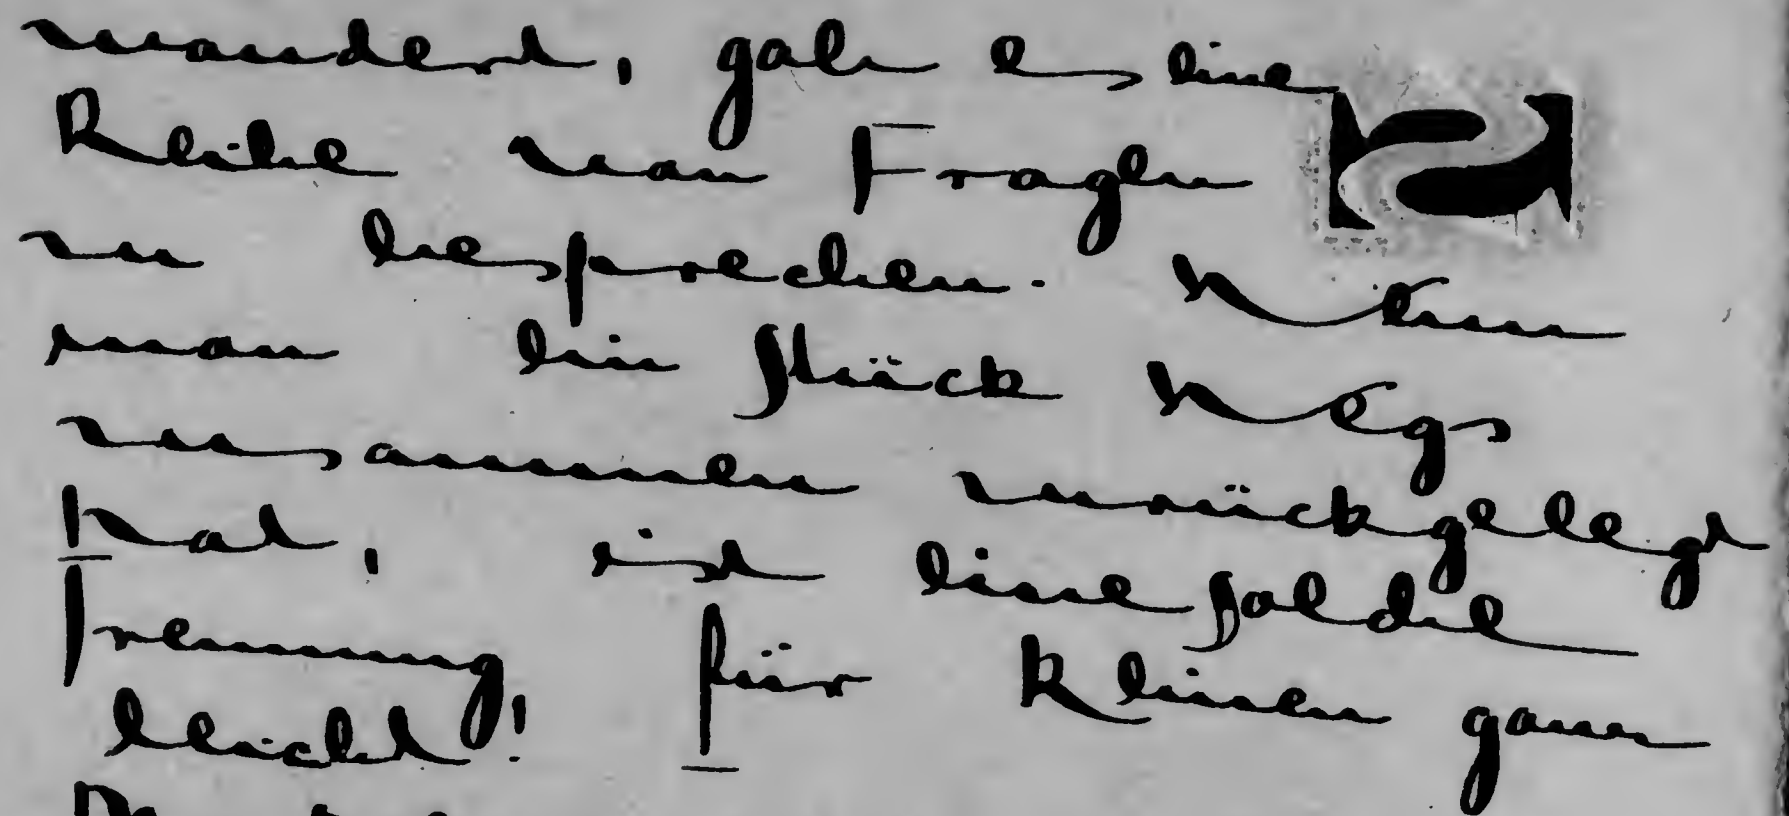 wandert, gab es eine
Reihe von Fragen
zu besprechen. Wenn
man ein Stück Wegs
zusammen zurückgelegt
hat, ist eine solche
Trennung, für keinen ganz
leicht!